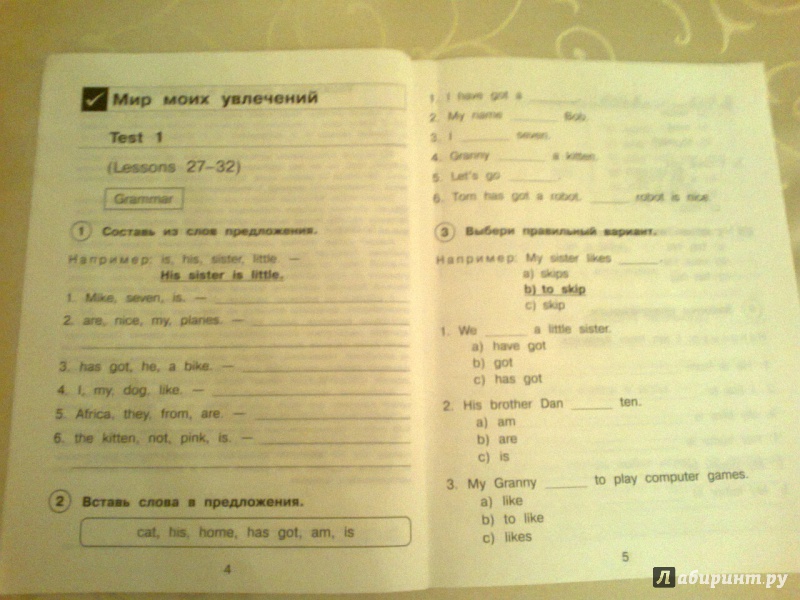 Мир моих увлечений
Test 1
(Lessons 27–32)
Grammar
1 Составь из слов предложения.
Например: is, his, sister, little. —
His sister is little.
1. Mike, seven, is. —
2. are, nice, my, planes. —
3. has got, he, a bike. —
4. I, my, dog, like. —
5. Africa, they, from, are. —
6. the kitten, not, pink, is. —
2 Вставь слова в предложения.
cat, his, home, has got, am, is
4
1. I have got a ______.
2. My name ______ Bob.
3. I ______ seven.
4. Granny ______ a kitten.
5. Let's go ______.
6. Tom has got a robot. ______ robot is nice.
3 Выбери правильный вариант.
Например: My sister likes ______.
a) skips
b) to skip
c) skip
1. We ______ a little sister.
a) have got
b) got
c) has got
2. His brother Dan ______ ten.
a) am
b) are
c) is
3. My Granny ______ to play computer games.
a) like
b) to like
c) likes
5
Лабиринт.ру